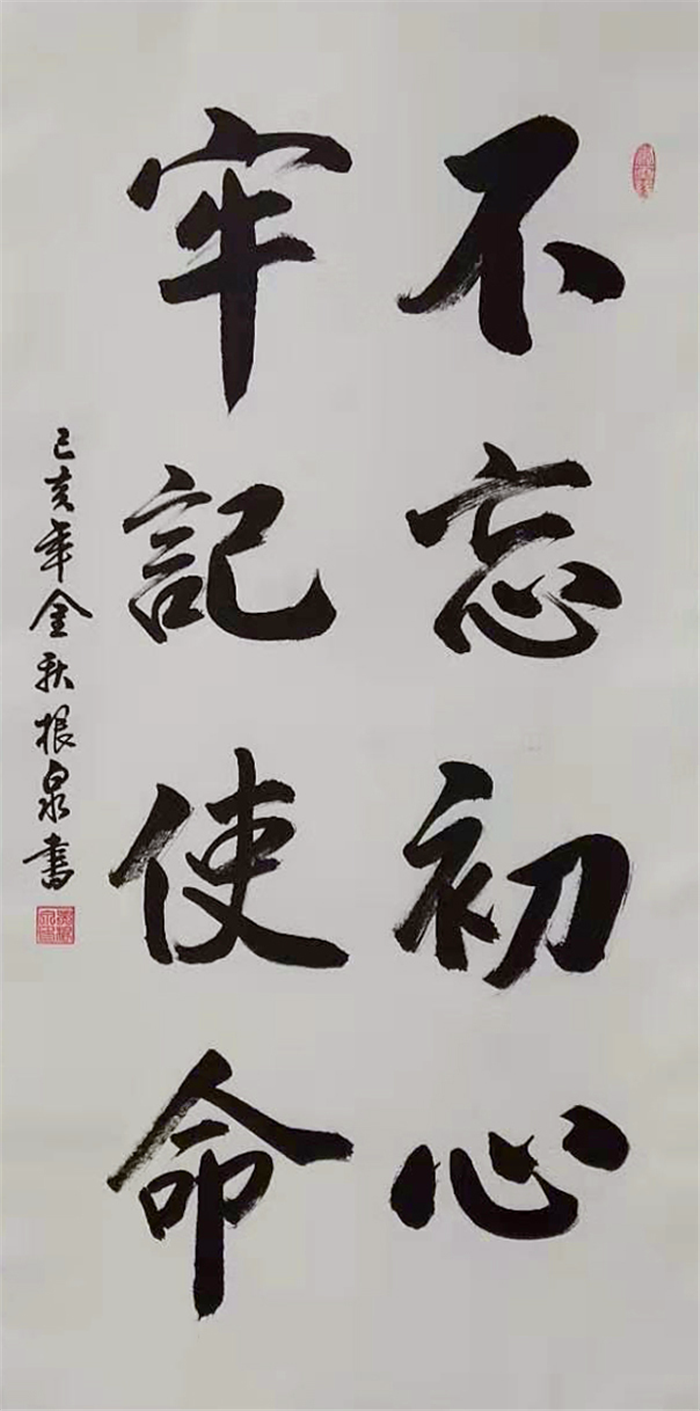 不忘初心
牢記使命
己亥年金秋根泉書